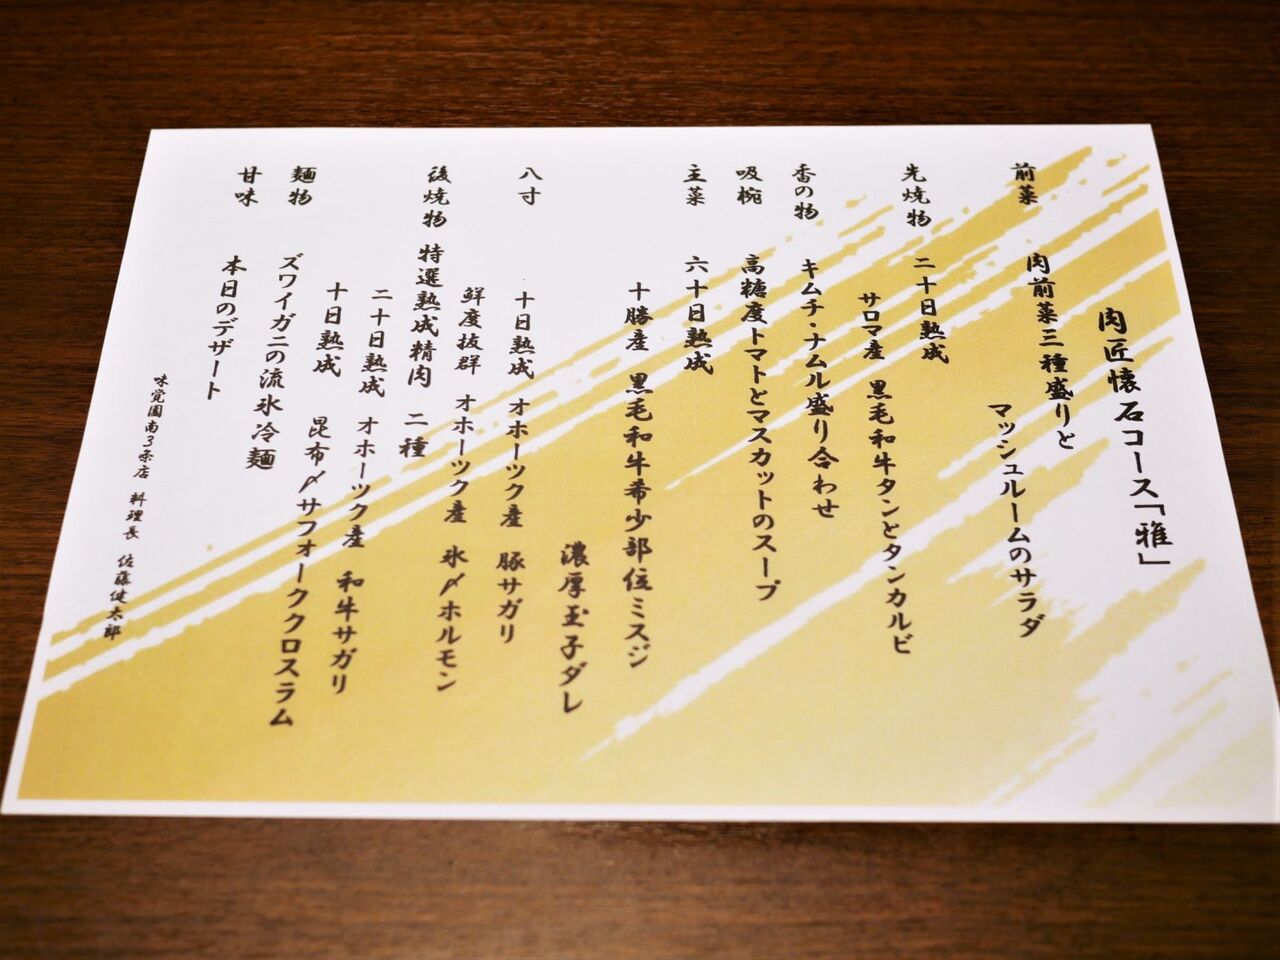 肉匠懐石コース「雅」
前菜　肉前菜三種盛りと
マッシュルームのサラダ
先焼物　二十日熟成
サロマ産　黒毛和牛タンとタンカルビ
香の物　キムチ・ナムル盛り合わせ
吸椀　高糖度トマトとマスカットのスープ
主菜　六十日熟成
十勝産　黒毛和牛希少部位ミスジ
濃厚玉子ダレ
八寸　十日熟成　オホーツク産　豚サガリ
鮮度抜群　オホーツク産　氷〆ホルモン
後焼物　特選熟成精肉　二種
二十日熟成　オホーツク産　和牛サガリ
十日熟成　昆布〆サフォーククロスラム
麺物　ズワイガニの流氷冷麺
甘味　本日のデザート
味覚園南3条店　料理長　佐藤健太郎